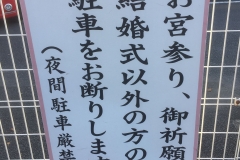 お宮参り、御祈願
結婚式以外の方の
駐車をお断りします
（夜間駐車厳禁